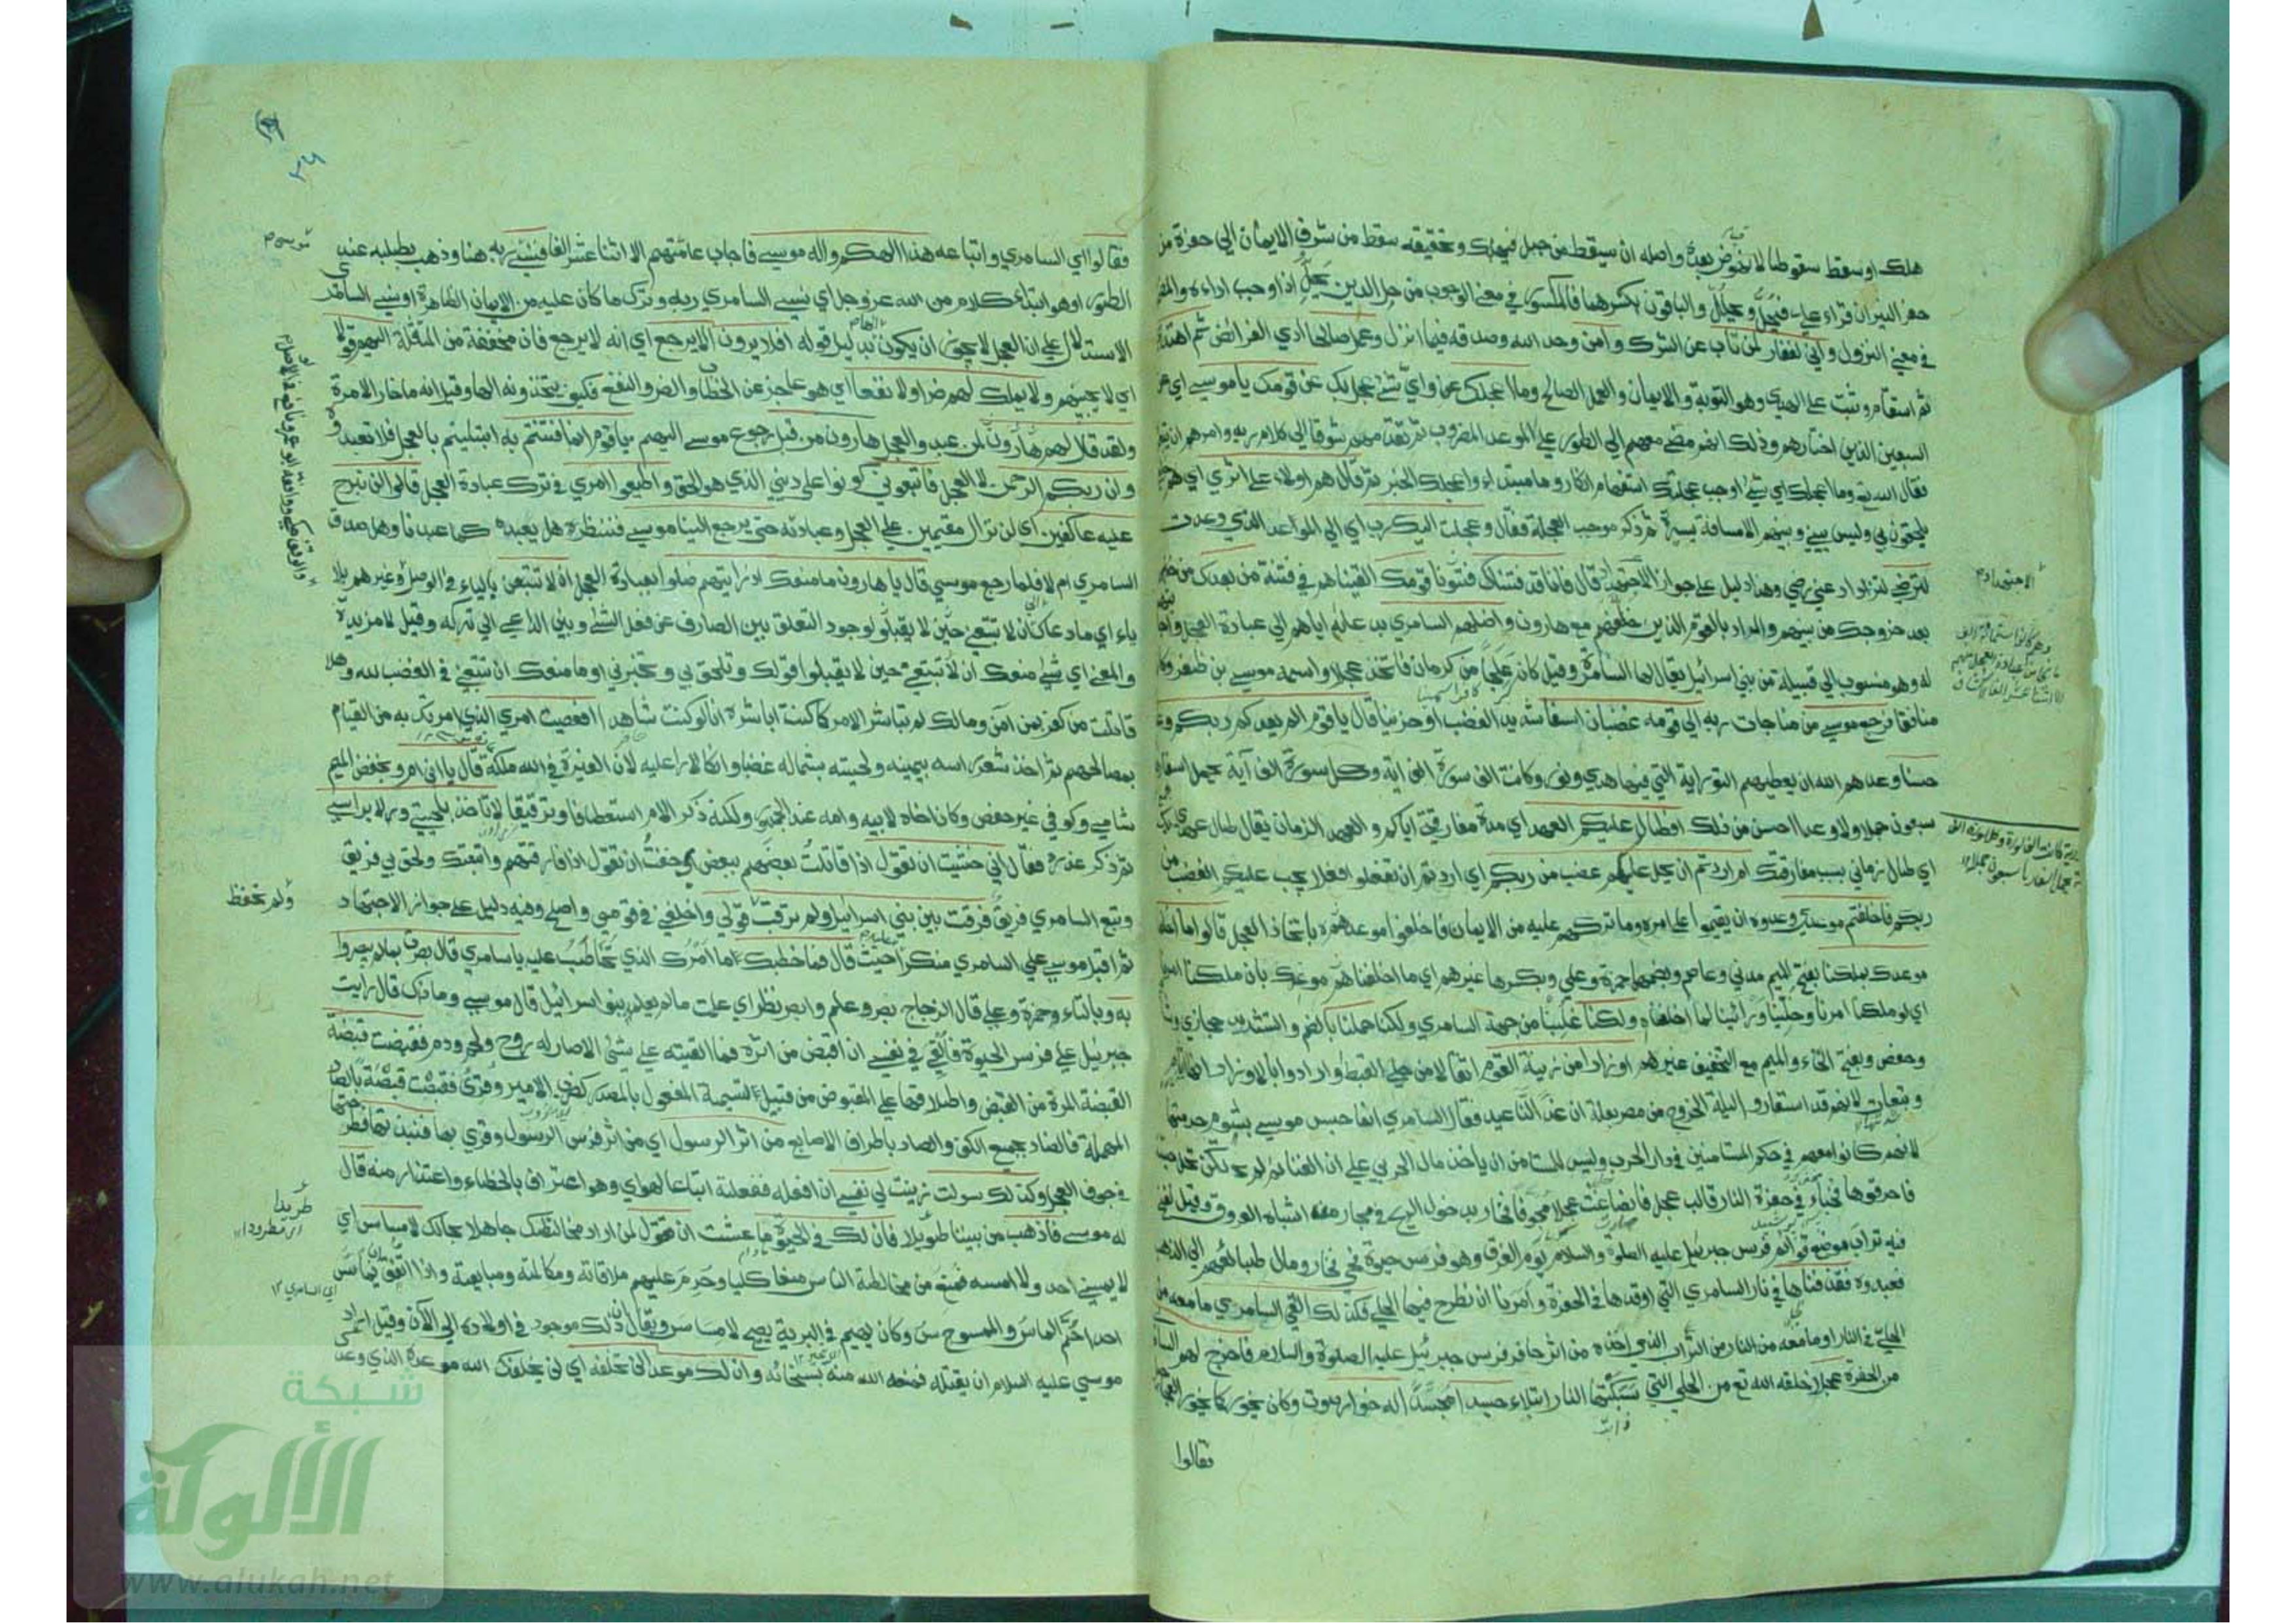 هلك او سقط سقوطا لا نهوض بعده واصله ان يسقط من جبل فيهلك وتحقيقه سقط من شرف الايمان الى حفرة من
حفر النيران قراء علي فيحل ويحلل والباقون بكسرهما فالمكسور في معنى الوجوب من حل الدين يحل اذا وجب اداءه والمضموم
في معنى النزول واني لغفار لمن تاب عن الشرك وامن وحد الله وصدقه فيما انزل وعمل صالحا ادي الفرائض ثم اهتدى
ثم استقام وثبت على الهدي وهو التوبة والايمان والعمل الصالح وما اعجلك اي واي شئ عجل بك عن قومك يا موسى اي عن
السبعين الذين اختارهم وذلك انه مضى معهم الى الطور على الموعد المضروب ثم تقدمهم شوقا الى كلام ربه وامرهم ان
فقال الله تع وما اعجلك اي شئ اوجب عجلتك استفهام انكار وما مبتداء واعجلك الخبر ثم قال هم اولاء على اثري اي هم
يلحقون بي وليس بيني وبينهم الا مسافة يسيرة ثم ذكر موجب العجلة فقال وعجلت اليك رب اي الى الموعد الذي وعدت
لترضى لتزداد عني رضي وهذا دليل على جواز الاجتهاد قال فانا قد فتنا قومك القيناهم في فتنة من بعدك من
بعد خروجك من بينهم والمراد بالقوم الذين خلفهم مع هارون واضلهم السامري بدعائه اياهم الى عبادة العجل
له وهو منسوب الى قبيلة من بني اسرائيل يقال لها السامرة وقيل كان علجا من كرمان فاتخذ عجلا واسمه موسى بن ظفر وكان
منافقا فرجع موسى من مناجات ربه الى قومه غضبان اسفا شديد الغضب او حزينا قال يا قوم الم يعدكم ربكم وعدا
حسنا وعدهم الله ان يعطيهم التورية التي فيها هدي ونور وكانت الف سورة كل سورة الف آية يحمل اسفارها
سبعون جملا ولا وعدا احسن من ذلك افطال عليكم العهد اي مدة مفارقتي اياكم والعهد الزمان يقال طال عهدي بك
اي طال زماني بسبب مفارقتك ام اردتم ان يحل عليكم غضب من ربكم اي اردتم ان تفعلوا فعلا يجب عليكم الغضب من
ربكم فاخلفتم موعدي وعدوه ان يقيموا على امره وما تركهم عليه من الايمان فاخلفوا موعده باتخاذ العجل قالوا ما اخلفنا
موعدك بملكنا بفتح الميم مدني وعاصم وبضمها حمزة وعلي وبكسرها غيرهم اي ما اخلفنا موعدك بان ملكنا امرنا
اي لو ملكنا امرنا وخلينا وراينا لما اخلفناه ولكنا غلبنا من جهة السامري ولكنا حملنا بالضم والتشديد حجازي
وحفص وبفتح الحاء والميم مع التخفيف غيرهم اوزارا من زينة القوم اثقالا من حلي القبط وارادوا بالاوزار انها
وتبعات لانهم قد استعاروا ليلة الخروج من مصر بعلة ان غدا لنا عيد فقال السامري انما حبس موسى بشوم حرمتها
لانهم كانوا معهم في حكم المستامنين في دار الحرب وليس للمستامن ان ياخذ مال الحربي على ان الغنائم لم تكن تحل حينئذ
فاحرقوها فخباء في حفرة النار قالب عجل فانصاغت عجلا مجوفا فخار بدخول الريح في مجار منه اشباه العروق وقيل نفخ
فيه تراب من موضع قوائم فرس جبرئيل عليه الصلوة والسلام يوم الغرق وهو فرس حيوة فحي فخار ومال طبائعهم الى الذهب
فعبدوه فقذفناها في نار السامري التي اوقدها في الحفرة وامرنا ان نطرح فيها الحلي فكذلك القى السامري ما معه من
الحلي في النار او ما معه من النار من التراب الذي اخذه من اثر حافر فرس جبرئيل عليه الصلوة والسلام فاخرج لهم السامري
من الحفرة عجلا خلقه الله تع من الحلي التي سبكتها النار ابتلاء جسدا مجسدا له خوار صوت وكان يخور كما يخور العجل
فقالوا
الاجتهاد
فقالوا اي السامري واتباعه هذا الهكم واله موسى فاجاب عامتهم الا اثنا عشر الفا فنسي ربه هنا وذهب يطلبه عند
الطور او هو ابتداء كلام من الله عز وجل اي نسي السامري ربه وترك ما كان عليه من الايمان الظاهر او نسي السامري
الاستدلال على ان العجل لا يجوز ان يكون الها بدليل قوله افلا يرون الا يرجع اي انه لا يرجع فان مخففة من المثقلة اليهم قولا
اي لا يجيبهم ولا يملك لهم ضرا ولا نفعا اي هو عاجز عن الخطاب والضر والنفع فكيف يتخذونه الها وقيل انه ما خار الا مرة
ولقد قال لهم هارون لمن عبدوا العجل هارون من قبل رجوع موسى اليهم يا قوم انما فتنتم به ابتليتم بالعجل فلا تعبدوه
وان ربكم الرحمن لا العجل فاتبعوني كونوا على ديني الذي هو الحق واطيعوا امري في ترك عبادة العجل قالوا لن نبرح
عليه عاكفين اي لن نزال مقيمين على العجل وعبادته حتى يرجع الينا موسى فننظره هل يعبده كما عبدنا وهل صدق
السامري ام لا فلما رجع موسى قال يا هارون ما منعك اذ رايتهم ضلوا بعبادة العجل ان لا تتبعن بالياء في الوصل وغيرهم بلا
ياء اي ما دعاك الى ان لا تتبعني حين لا يقبلوا لوجود التعلق بين الصارف عن فعل الشئ وبين الداعي الى تركه وقيل لا مزيدة
والمعنى اي شئ منعك ان لا تتبعني حين لا يقبلوا قولك وتلحق بي وتخبرني او ما منعك ان تتبعني في الغضب لله وهلا
قاتلت من كفر بمن امن ومالك لم تباشر الامر كما كنت اباشره انا لو كنت شاهدا افعصيت امري الذي امرتك به من القيام
بمصالحهم ثم اخذ شعر راسه بيمينه ولحيته بشماله غضبا وانكارا عليه لان الغيرة في الله ملكته قال يا ابن ام وبخفض الميم
شامي وكوفي غير حفص وكان اخاه لابيه وامه عند الجمهور ولكنه ذكر الام استعطافا وترقيقا لا تاخذ بلحيتي ولا براسي
ثم ذكر عذره فقال اني خشيت ان تقول اذا قاتلت بعضهم ببعض اي خفت ان تقول اذا فارقتهم واتبعتك ولحق بي فريق
وتبع السامري فريق فرقت بين بني اسرائيل ولم ترقب قولي واخلفني في قومي واصلح وفيه دليل على جواز الاجتهاد
ثم اقبل موسى على السامري منكرا حيث قال فما خطبك ما امرك الذي تخاطب عليه يا سامري قال بصرت بما لم يبصروا
به وبالتاء وحمزة وعلي قال الزجاج بصر علم وابصر نظر اي علمت ما لم يعلم بنو اسرائيل قال موسى وما ذاك قال رايت
جبرئيل على فرس الحيوة فالقي في نفسي ان اقبض من اثره فما القيته على شئ الا صار له روح ولحم ودم فقبضت قبضة
القبضة المرة من القبض واطلاقها على المقبوض من قبيل تسمية المفعول بالمصدر كضرب الامير وقرئ فقبصت قبصة بالصاد
المهملة فالضاد بجميع الكف والصاد باطراف الاصابع من اثر الرسول اي من اثر فرس الرسول وقري بها فنبذتها فطرحتها
في جوف العجل وكذلك سولت زينت لي نفسي ان افعله ففعلته اتباعا لهواي وهو اعتراف بالخطاء واعتذار منه قال
له موسى فاذهب من بيننا طويلا فان لك في الحيوة ما عشت ان تقول لمن اراد مخالطتك جاهلا بحالك لا مساس اي
لا يمسني احد ولا امسه فمنع من مخالطة الناس منعا كليا وحرم عليهم ملاقاته ومكالمته ومبايعته واذا اتفق ان يماس
احدا حم الماس والممسوس وكان يهيم في البرية يصيح لا مساس ويقال ان ذلك موجود في اولاده الى الآن وقيل اراد
موسى عليه السلام ان يقتله فمنعه الله منه لسخائه وان لك موعدا لن تخلفه اي لن يخلفك الله موعده الذي وعدك
ولم تحفظ
طريدا
اي السامري ١٢
شبكة
الألوكة
www.alukah.net